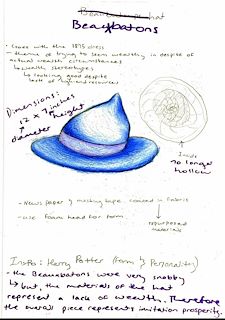 Beauxbatons hat
Beauxbatons
• Goes with this 1875 dress
• theme of trying to seem wealthy in despite of
actual wealth circumstances
↳ wealth stereotypes
↳ looking good despite
lack of high end resources
Dimensions:
12 x 9 inches
diameter
height
Inside
no longer
hollow
- News paper & masking tape covered in fabric
- use foam head for form
repurposed
materials
Inspo: Harry Potter (Form & Personality)
• the Beauxbatons were very snobby
↳ but, the materials of the hat
represent a lack of wealth. Therefore
the overall piece represents imitation prosperity.